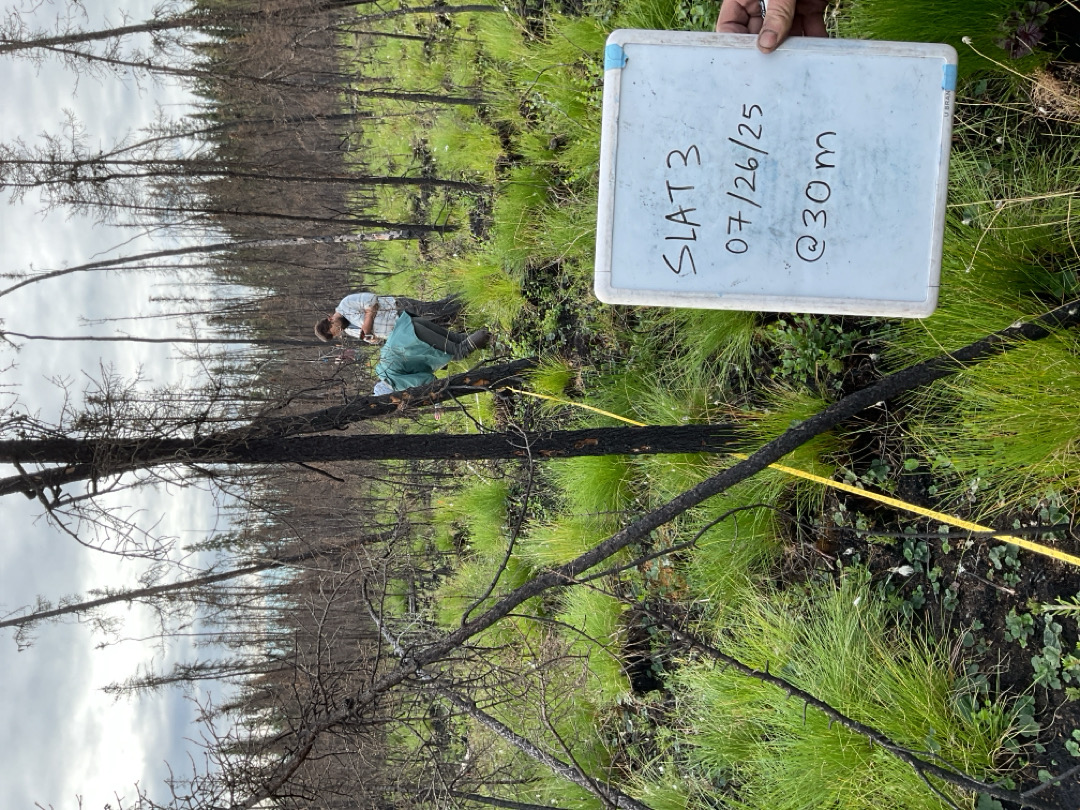 SLAT3
07/26/25
@30m
U BRAN